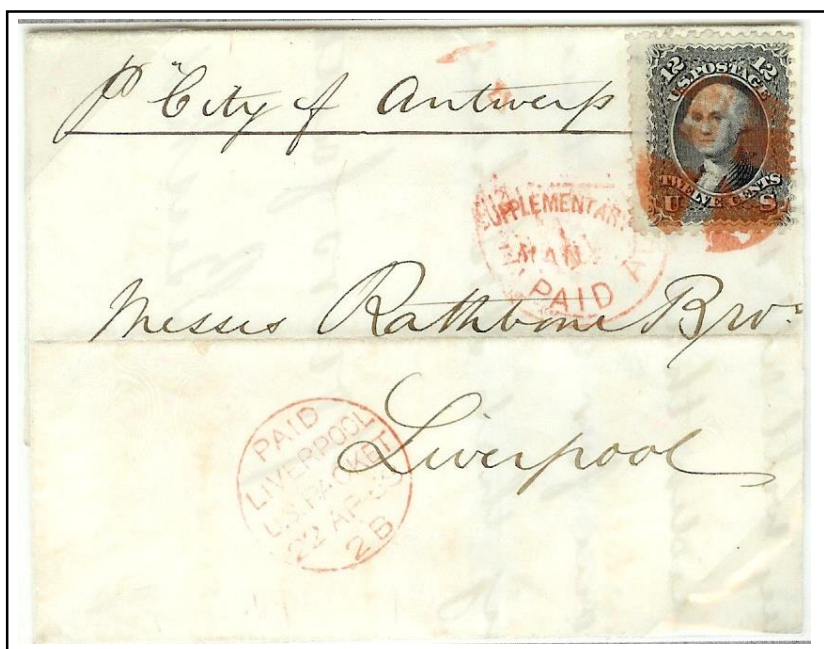 pr "City of Antwerp
12 12
U.S. POSTAGE
TWELVE CENTS
U S
SUPPLEMENTARY
PAID
Messrs Rathbone Bros
Liverpool
PAID
LIVERPOOL
U.S. PACKET
22 AP
2 B